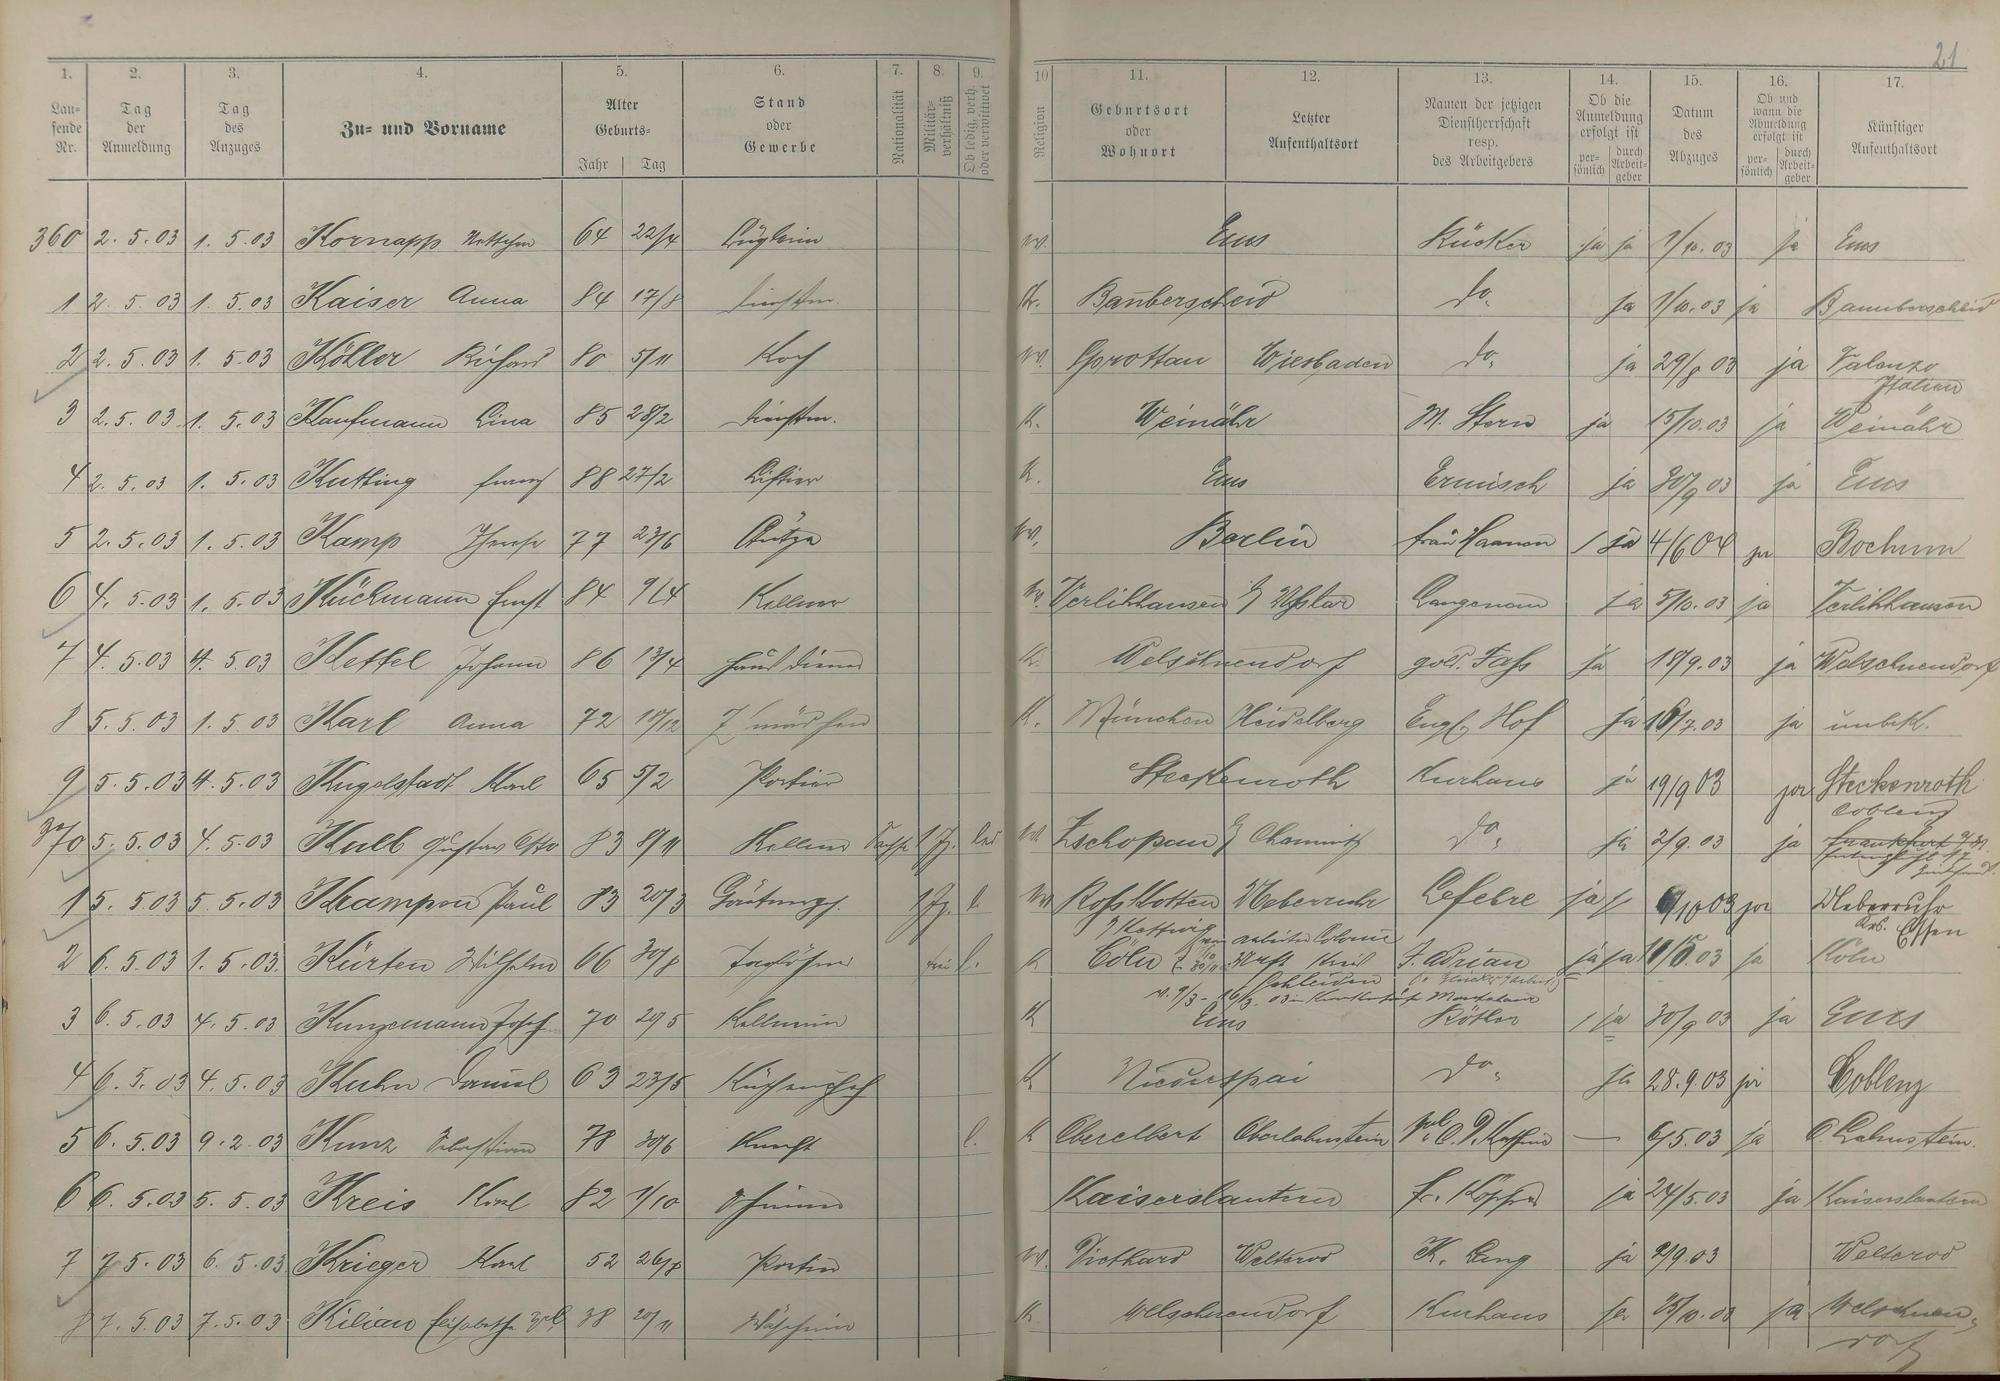 21
1. 2. 3. 4. 5. 6. 7. 8. 9. 10 11. 12. 13. 14. 15. 16. 17.
Laufende Nr. Tag der Anmeldung Tag des Anzuges Zu- und Vorname Alter Geburts- Jahr Tag Stand oder Gewerbe Nationalität Militärverhältniß Ob ledig, verh. oder verwittwet Religion Geburtsort oder Wohnort Letzter Aufenthaltsort Namen der jetzigen Dienstherrschaft resp. des Arbeitgebers Ob die Anmeldung erfolgt ist persönlich durch Arbeitgeber Datum des Abzuges Ob und wann die Abmeldung erfolgt ist persönlich durch Arbeitgeber Künftiger Aufenthaltsort
360 2. 5. 03 1. 5. 03 Kornapp 64 22/4 Büglerin w. Ems Rücker ja ja 1/10. 03 ja Ems
1 2. 5. 03 1. 5. 03 Kaiser Anna 84 17/8 Dienstm. K. Banberscheid do. ja 1/10. 03 ja Bannberscheid
2 2. 5. 03 1. 5. 03 Köhler Richard 80 5/11 Koch w. Sprottau Wiesbaden do. ja 29/8 03 ja Italien
3 2. 5. 03 1. 5. 03 Kaufmann Lina 85 28/2 Dienstm. K. Weinähr M. Stern ja 15/10. 03 ja Weinähr
4 2. 5. 03 1. 5. 03 Kutting Franz 88 27/2 Liftier K. Ems Ermisch ja 30/9 03 ja Ems
5 2. 5. 03 1. 5. 03 Kamp Therese 77 23/6 Stütze w. Berlin Frau Haanen / ja 4/6 04 ja Bochum
6 4. 5. 03 1. 5. 03 Küchmann Ernst 84 9/4 Kellner w. Verlihhausen Uslar Langenau ja 5/10. 03 ja Verlihhausen
7 4. 5. 03 4. 5. 03 Kettel Johann 86 13/4 Hausdiener K. Welschnendorf gold. Fass ja 18/9. 03 ja Welschnendorf
8 5. 5. 03 1. 5. 03 Karl Anna 72 10/12 Z mädchen K. München Heidelberg Engl. Hof ja 16/7. 03 ja unbek.
9 5. 5. 03 4. 5. 03 Kugelstadt Karl 65 5/2 Portier Steckenroth Kurhaus ja 19/9 03 ja Steckenroth
370 5. 5. 03 4. 5. 03 Kulb Gustav Otto 83 8/11 Kellner Sachse led w Zschopau Chemnitz do. ja 2/9. 03 ja Coblenz Frankfurt
1 5. 5 03 5. 5. 03 Krampen Paul 83 20/3 l. w Ross Kotten Ueberruhr Lefebre ja /10 03 ja Ueberruhr Krs. Essen
Kettwig Arbeiter Colonie
2 6. 5. 03 1. 5. 03. Kürten Wilhelm 66 30/8 Taglöhner l. K Cöln J. Adrian ja ja 03 ja Köln
3 6. 5. 03 4. 5. 03 Kunzemann 70 20/5 Kellnerin K Ems / ja 30/9 03 ja Ems
4 6. 5. 03 4. 5. 03 Kuhn Daniel 63 23/5 Küchenchef K Niederspai do. ja 28. 9. 03 ja Coblenz
5 6. 5. 03 9. 2. 03 Kunz Sebastian 78 30/6 Knecht l. K Oberelbert Oberlahnstein — 6/5. 03 ja O. Lahnstein.
6 6. 5. 03 5. 5. 03 Kreis Karl 82 1/10 Kaiserslautern ja 24/5. 03 ja Kaiserslautern
7 7. 5. 03 6. 5. 03 Krieger Karl 52 26/8 Portier w. Diethard Welterod K. ja 2/9. 03 Welterod
8 7. 5. 03 7. 5. 03 Kilian Elisabetha 38 20/11 Wäscherin K Welschnendorf Kurhaus ja 15/10. 03 ja Welschnendorf